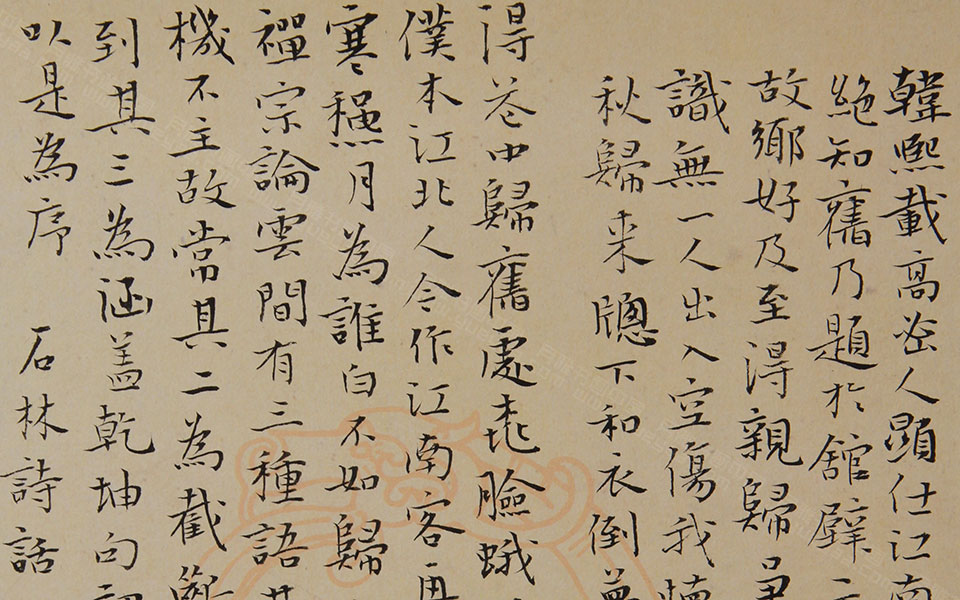 韓熙載高密人顯仕江南
絶知舊乃題於館壁二
故鄉好及至得親歸尋
識無一人出入空傷我懷
秋歸来牕下和衣倒夢
得巷中歸舊處桃臉蛾
僕本江北人今作江南客再
寒穩月為誰白不如歸
禪宗論雲間有三種語其
機不主故常其二為截斷
到其三為涵盖乾坤句
以是為序 石林詩話